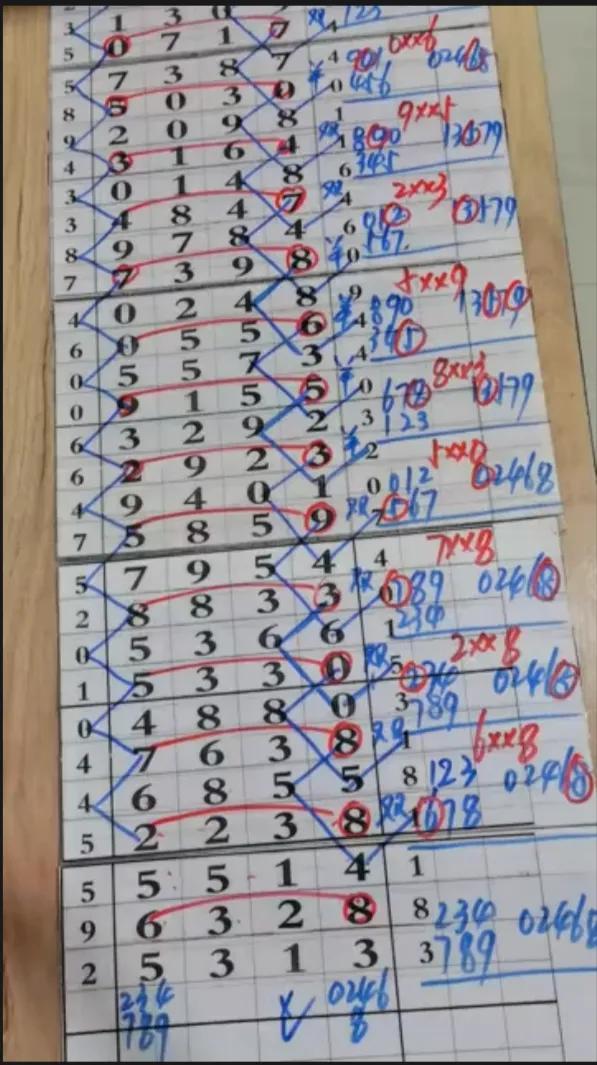 3 1 3 0
5 0 7 1 7 4 123
7 3 8 7 4 901 0xx6 02468
8 5 0 3 9 0 456
9 2 0 9 8 1 9xx5
4 3 1 6 4 1 890 13579
3 0 1 4 8 6 345
3 4 8 4 7 4 2xx3
8 9 7 8 4 6 012 13579
7 7 3 9 8 0 567
4 0 2 4 8 9 5xx9
6 0 5 5 6 4 890 13579
0 5 5 7 3 4 345
0 9 1 5 5 0 678 8xx3 13579
6 3 2 9 2 3 123
6 2 9 2 3 2 5xx0
4 9 4 0 1 0 012 02468
7 5 8 5 9 7 567
5 7 9 5 4 4 7xx8
2 8 8 3 3 0 789 02468
0 5 3 6 6 1 234
1 5 3 3 0 5 2xx8
0 4 8 8 0 3 789 02468
4 7 6 3 8 1 6xx8
4 6 8 5 5 8 123 02468
5 2 2 3 8 1 678
5 5 5 1 4 1
9 6 3 2 8 8 234 02468
2 5 3 1 3 3 789
234 X 0246
789 8